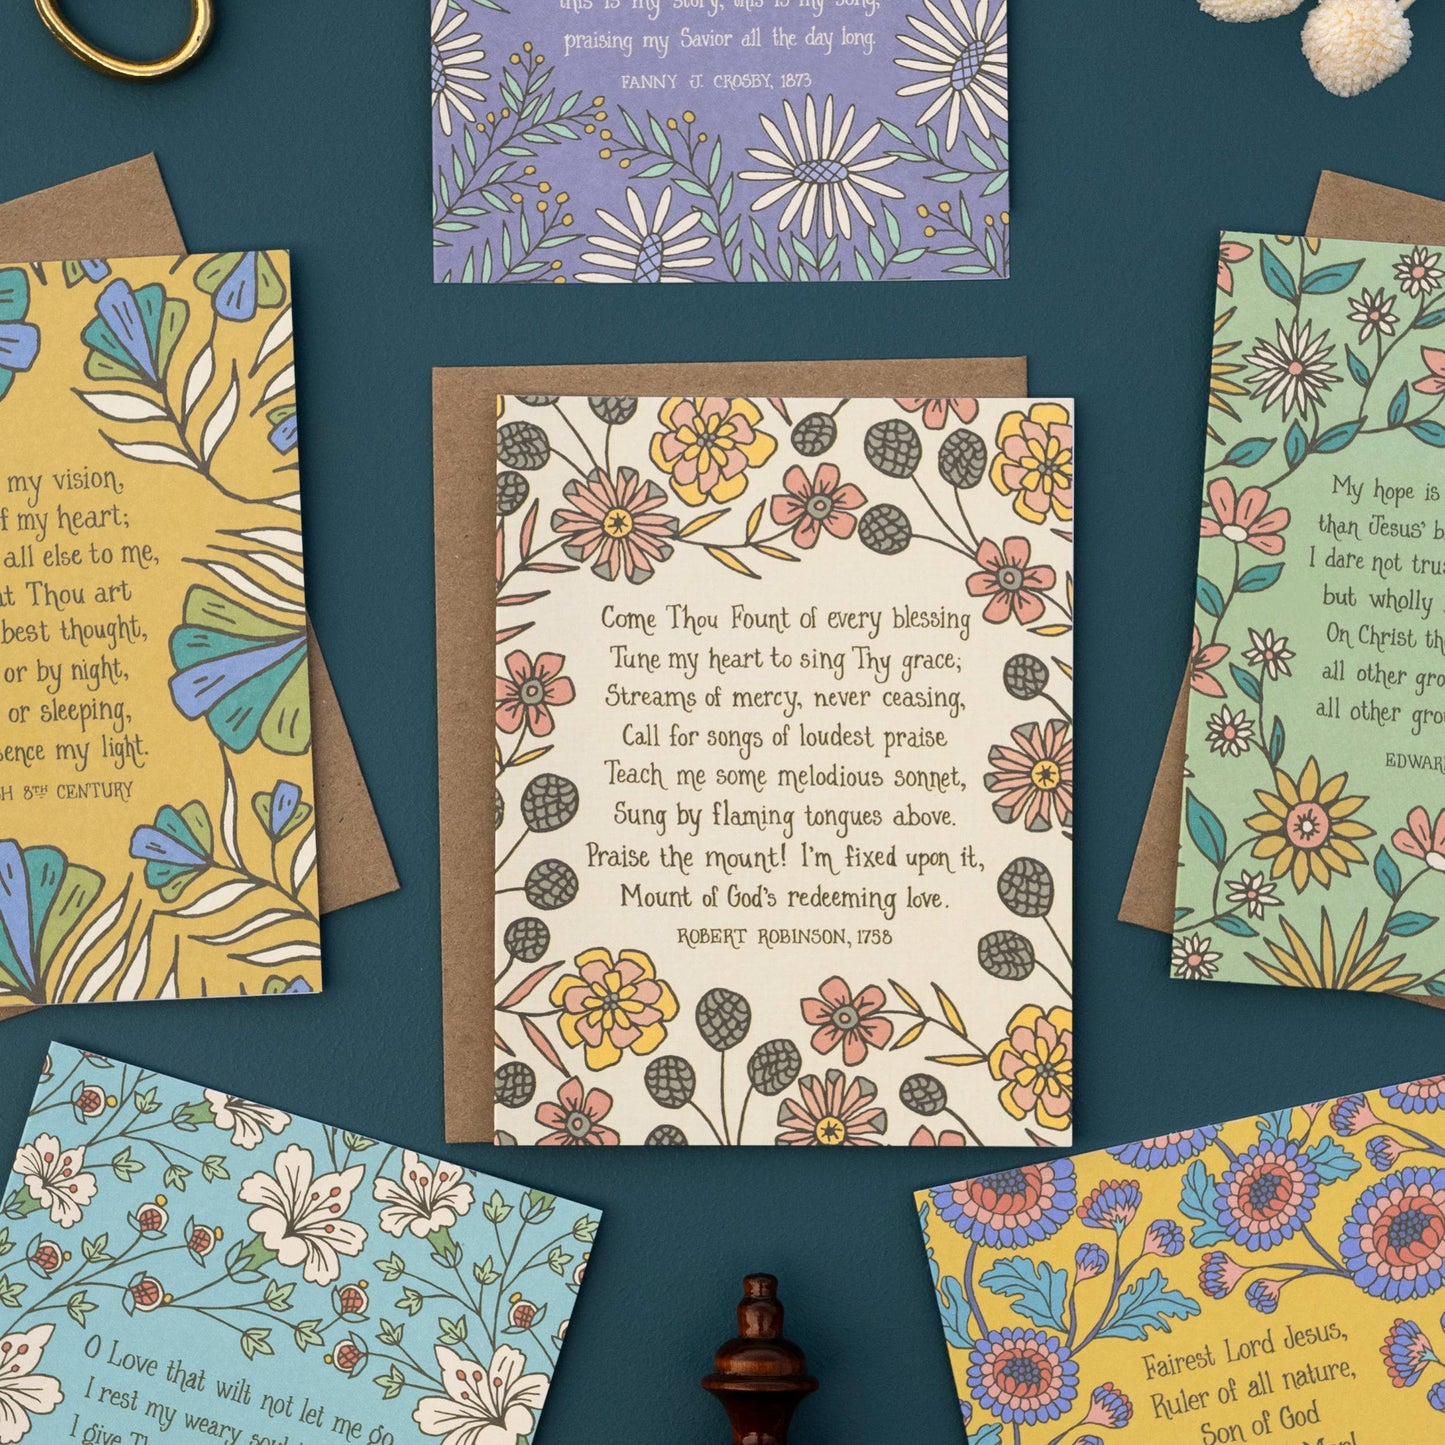 this is my story, this is my song,
praising my Savior all the day long.
FANNY J. CROSBY, 1873
my vision,
of my heart;
all else to me,
Thou art
best thought,
or by night,
or sleeping,
my light.
8TH CENTURY
Come Thou Fount of every blessing
Tune my heart to sing Thy grace;
Streams of mercy, never ceasing,
Call for songs of loudest praise
Teach me some melodious sonnet,
Sung by flaming tongues above.
Praise the mount! I'm fixed upon it,
Mount of God's redeeming love.
ROBERT ROBINSON, 1758
My hope is
than Jesus'
I dare not
but wholly
On Christ
all other
all other
EDWARD
O Love that wilt not let me go
I rest my weary
I give
Fairest Lord Jesus,
Ruler of all nature,
Son of God